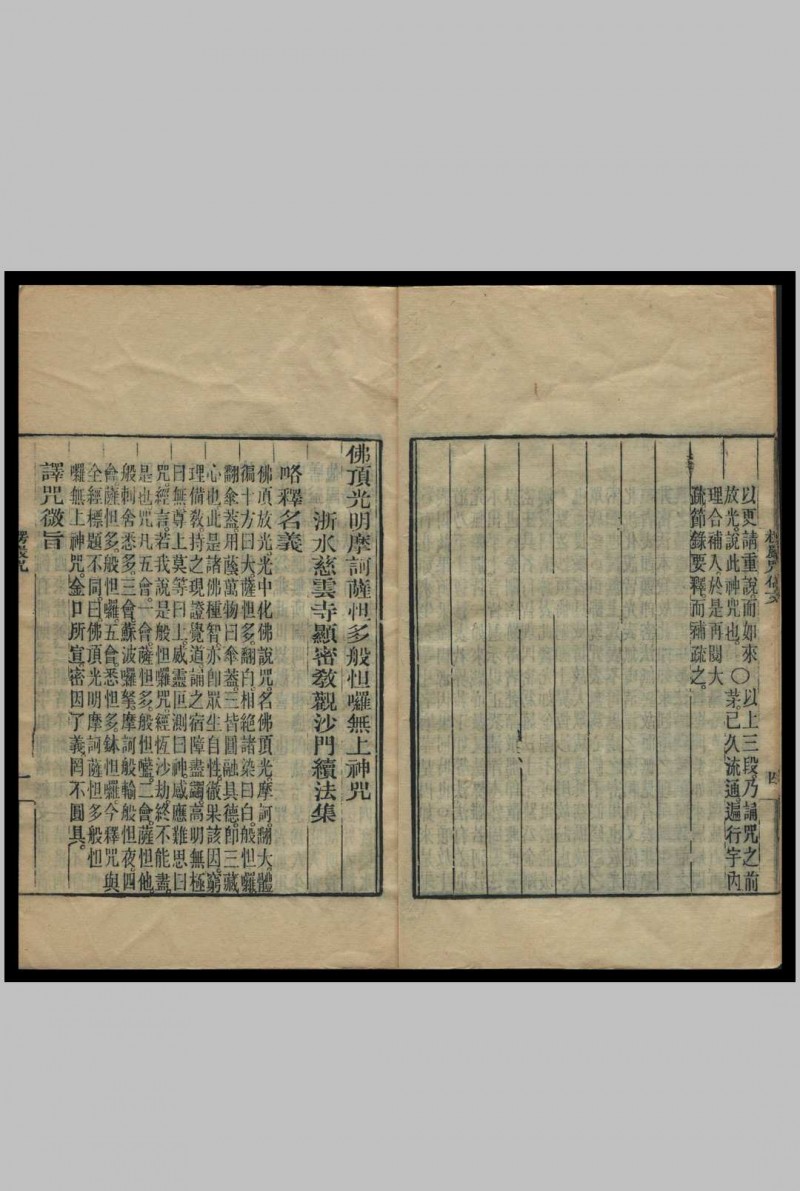 以更請重說。而如來○以上三段乃誦咒之前
放光。說此神咒也。芽。已久流通遍行宇內
理合補入。於是再閱大
疏。節錄要釋。而補疏之。
四
佛頂光明摩訶薩怛多般怛囉無上神咒
浙水慈雲寺顯密敎觀沙門續法集
略釋名義
佛頂放光。光中化佛說咒。名佛頂光。摩訶。翻大。體
徧十方曰大。薩怛多。翻白。相絕諸染曰白。般怛囉。
翻傘蓋。用蔭萬物曰傘蓋。三皆圓融具德。卽三藏
心也。此是諸佛種智。亦卽眾生自性。徹果該因。窮
理備敎。持之現證覺道。誦之宿障盡蠲。高明無極
曰無尊上莫等曰上。威靈叵測曰神。感應難思曰
咒。經言。若我說是般怛囉咒。經恆沙劫。終不能盡。
是也。咒凡五會。一會。薩怛多般怛囕。二會。薩怛他
般剌舍悉多。三會。蘇波囉拏摩訶般輸般怛夜。四
會薩怛多般怛囉。五會悉怛多鉢怛囉。今釋咒與
全經標題不同。曰佛頂光明摩訶薩怛多般怛
囉無上神咒。金口所宣密因了義。罔不圓具。
譯咒微旨
一